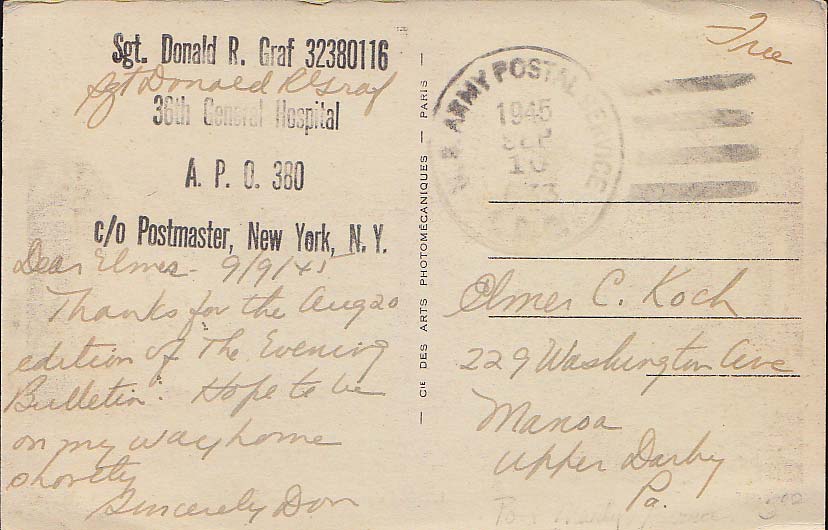 Sgt. Donald R. Graf 32380116
Sgt Donald R Graf
36th General Hospital
A. P. O. 380
c/o Postmaster, New York, N. Y.
Dear Elmer - 9/9/45
Thanks for the Aug 20
edition of "The Evening
Bulletin". Hope to be
on my way home
shortly
Sincerely Don
— CIE DES ARTS PHOTOMÉCANIQUES — PARIS —
Free
U. S. ARMY POSTAL SERVICE
1945
SEP
10
Elmer C. Koch
229 Washington Ave
Manoa
Upper Darby
Pa.